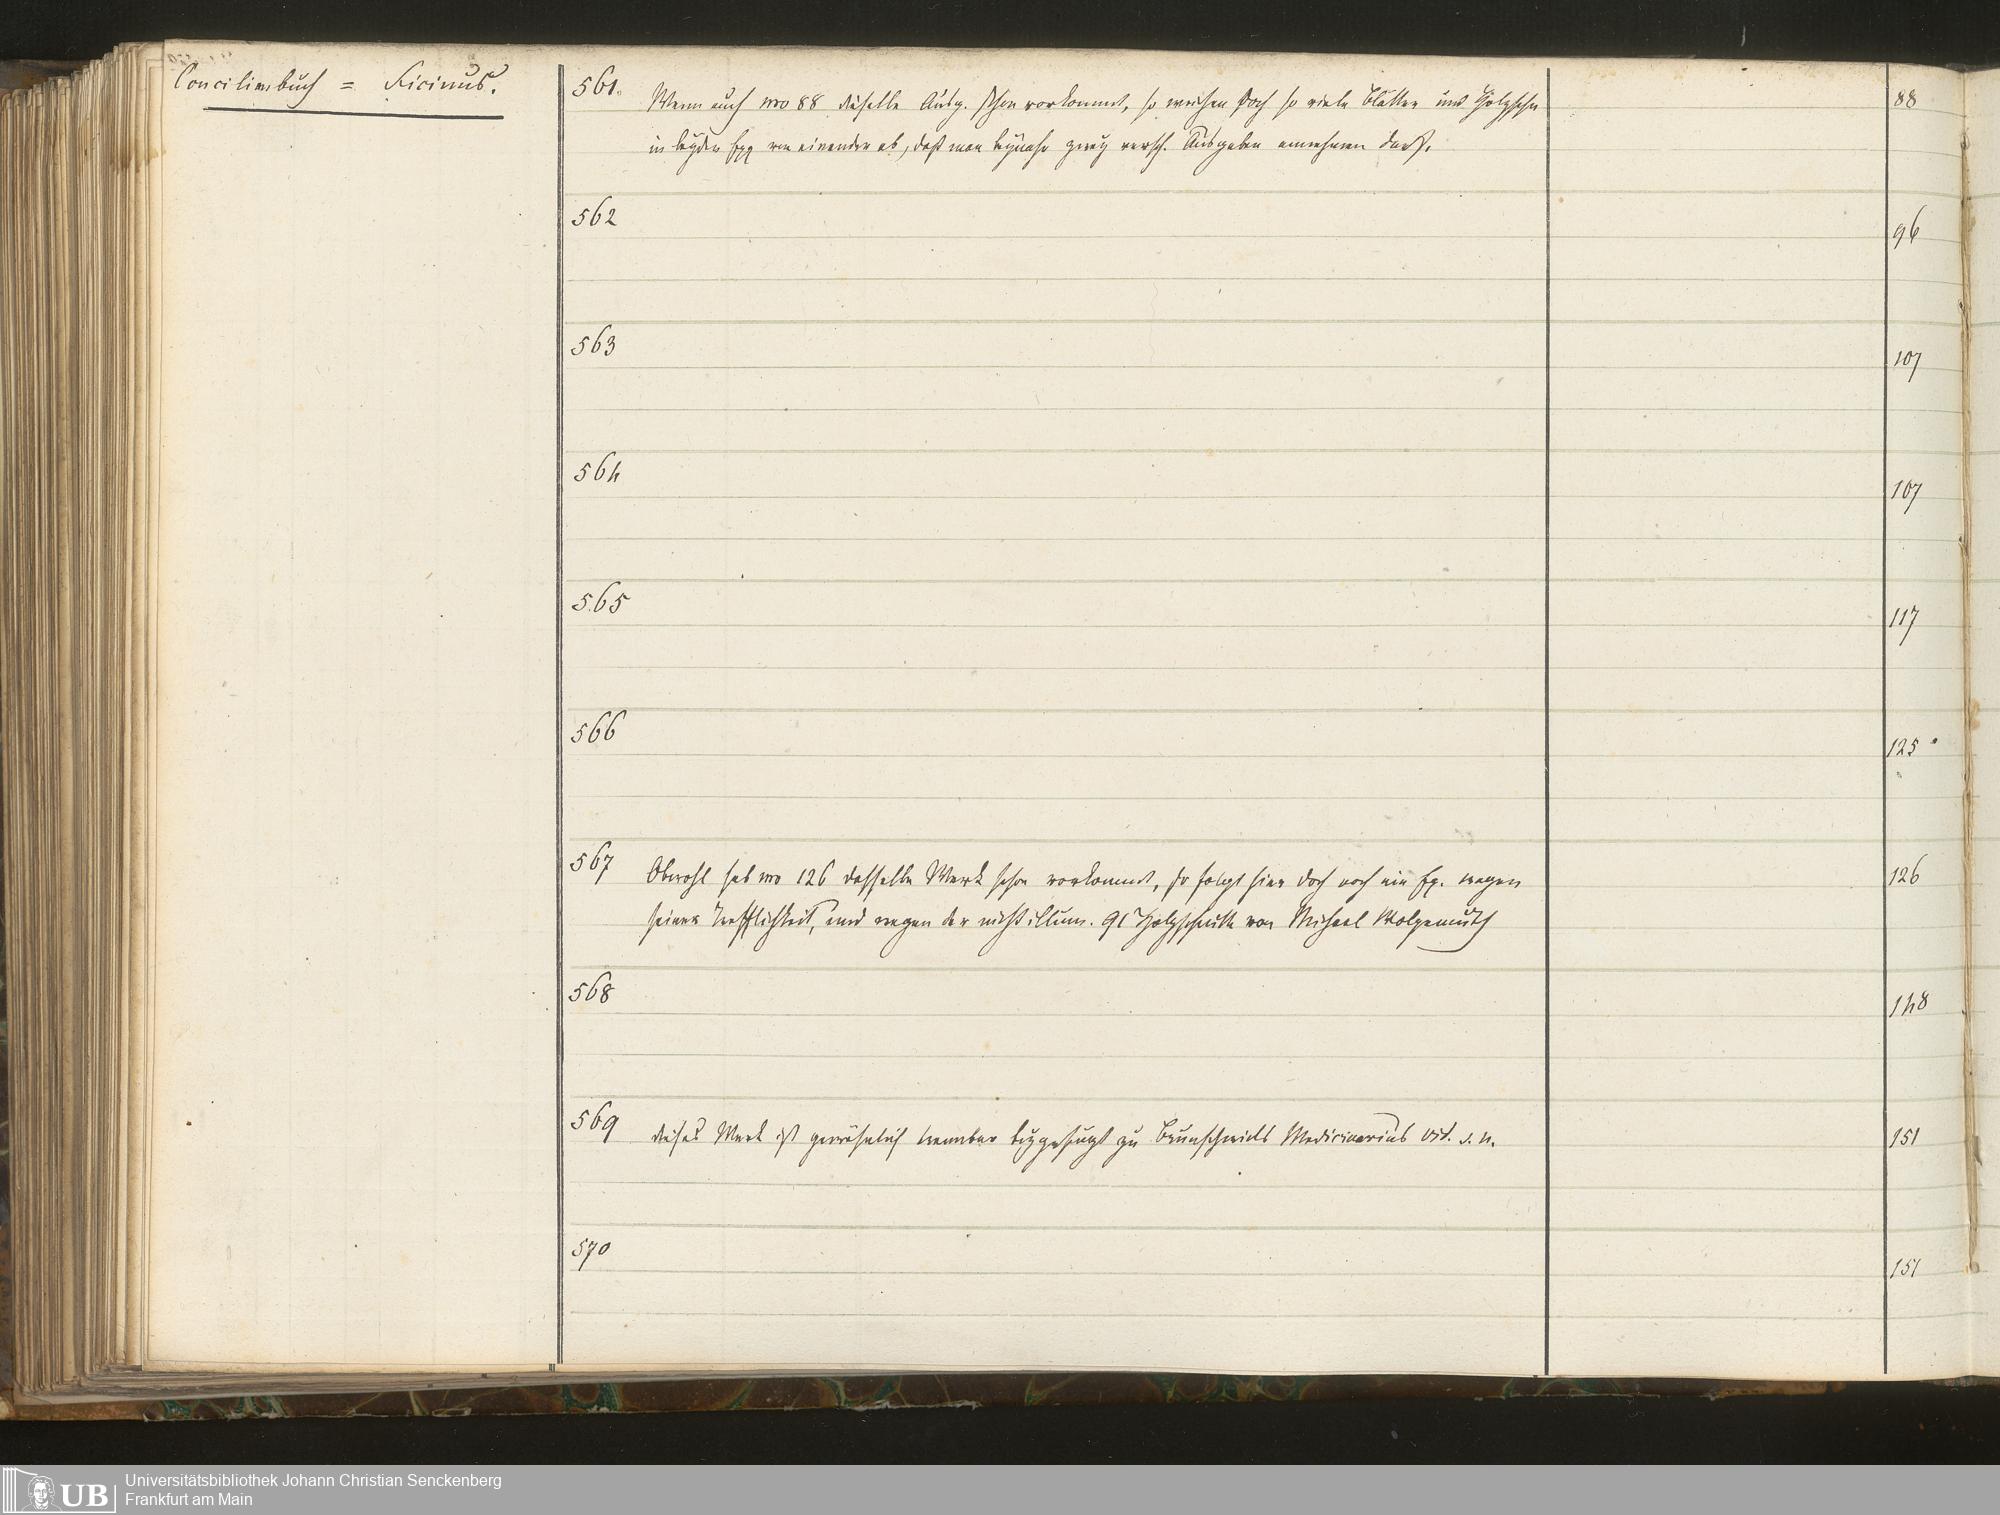 Concilienbuch = Ficinus.
561. Wenn auch nro 88 dieselbe Ausg. schon vorkommt, so weichen doch so viele Blätter und Holzschn
in beyden Exx von einander ab, daß man beynahe zwey versch. Ausgaben annehmen darf.
88
562
96
563
107
564
107
565
117
566
125
567 Obwohl sub nro 126 dasselbe Werk schon vorkommt, so folgt hier doch noch ein Ex. wegen
seiner Trefflichkeit, und wegen der nicht illum. 91 Holzschnitte von Michael Wolgemuth
126
568
148
569 dieses Werk ist gewöhnlich beygefügt zu Brunschwicks Medicinarius
151
570
151
UB
Universitätsbibliothek Johann Christian Senckenberg
Frankfurt am Main